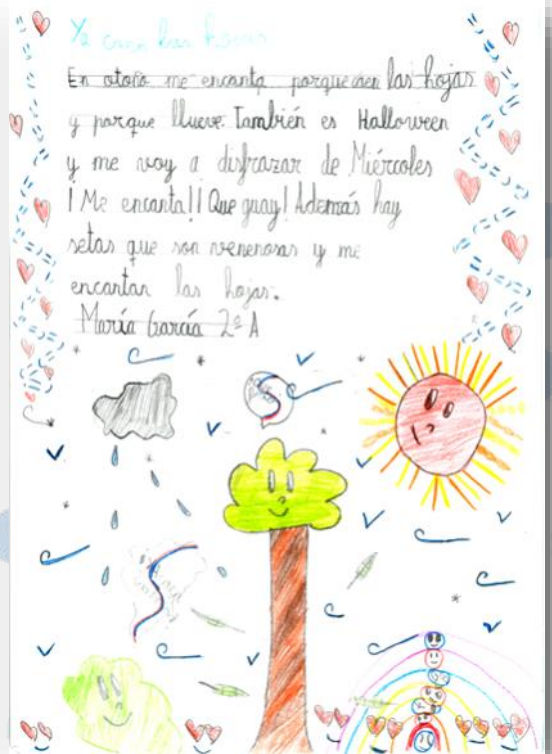 Ya caen las hojas
En otoño me encanta porque caen las hojas
y porque llueve. También es Halloween
y me voy a disfrazar de Miércoles
¡Me encanta!¡Que guay! Además hay
setas que son venenosas y me
encantan las hojas.
María García 2º A